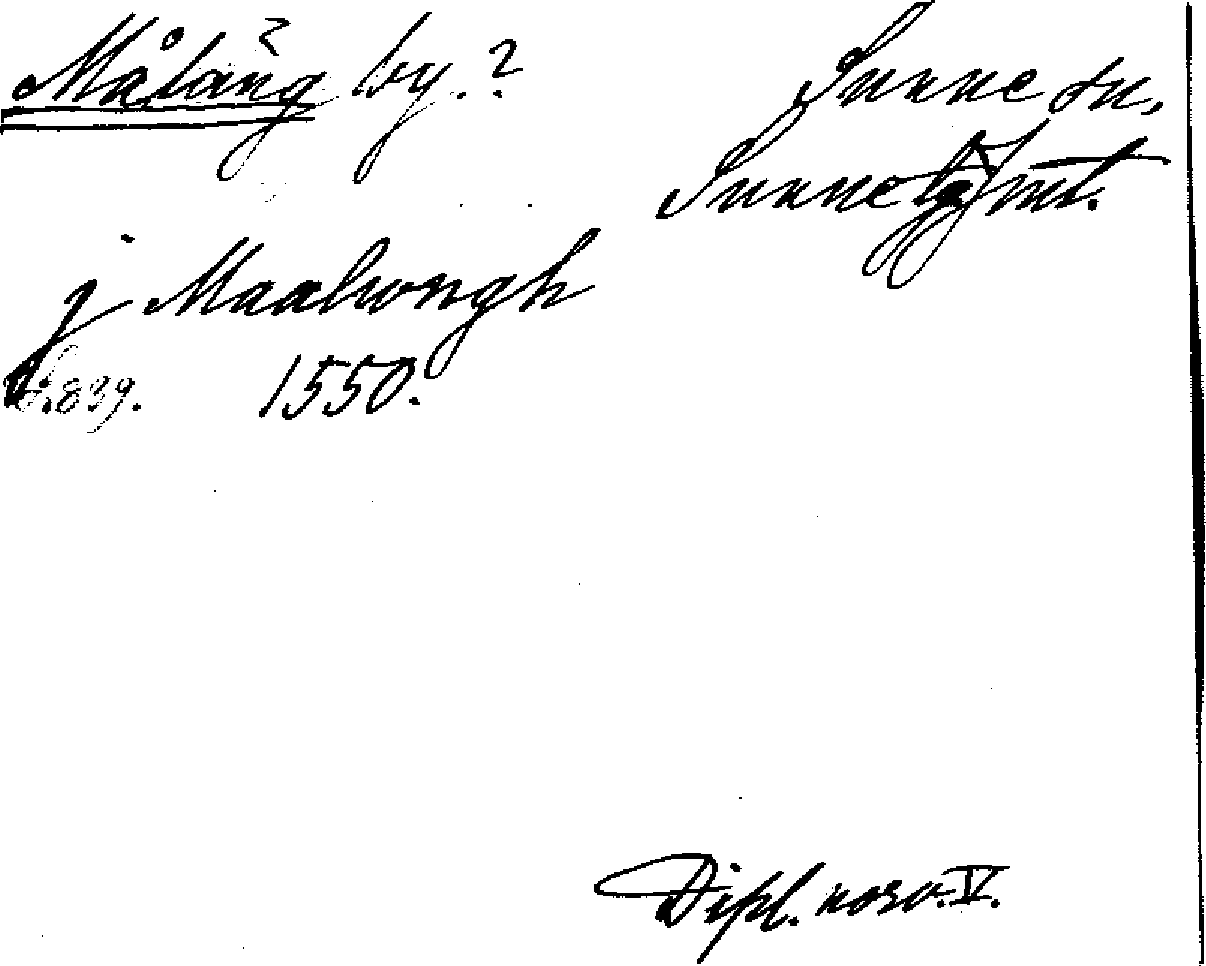 Målång by.? Sunne sn,
Sunne tgsmt.
j Maalwngh
S. 839. 1550.
Dipl. norv. V.